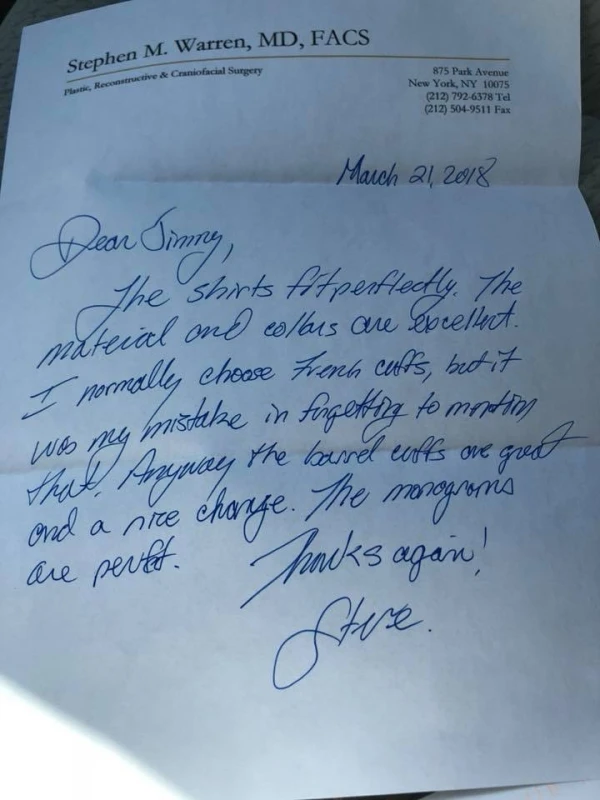 Stephen M. Warren, MD, FACS
Plastic, Reconstructive & Craniofacial Surgery
875 Park Avenue
New York, NY 10075
(212) 792-6378 Tel
(212) 504-9511 Fax
March 21, 2018
Dear Jimmy,
The shirts fit perfectly. The
material and collars are excellent.
I normally choose French cuffs, but it
was my mistake in forgetting to mention
that. Anyway the barrel cuffs are great
and a nice change. The monograms
are perfect.
Thanks again!
Steve.